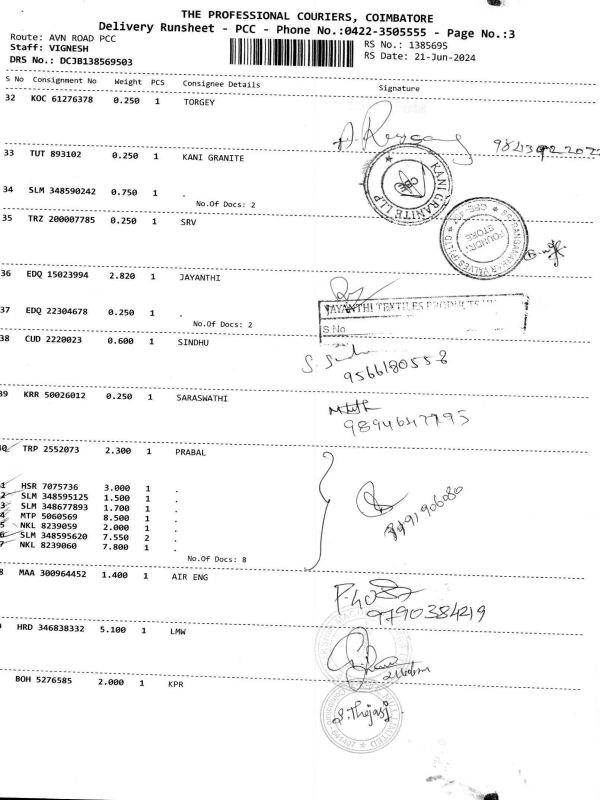 THE PROFESSIONAL COURIERS, COIMBATORE
Delivery Runsheet - PCC - Phone No.:0422-3505555 - Page No.:3
Route: AVN ROAD PCC
RS No.: 1385695
Staff: VIGNESH
RS Date: 21-Jun-2024
DRS No.: DCJB138569503
S No Consignment No Weight PCS Consignee Details Signature
32 KOC 61276378 0.250 1 TORGEY
33 TUT 893102 0.250 1 KANI GRANITE
KANI GRANITE LLP
34 SLM 348590242 0.750 1 .
No.Of Docs: 2
35 TRZ 200007785 0.250 1 SRV
FOUNDRY STORE
36 EDQ 15023994 2.820 1 JAYANTHI
JAYANTHI TEXTILES PRODUCTS
S.No
37 EDQ 22304678 0.250 1 .
No.Of Docs: 2
38 CUD 2220023 0.600 1 SINDHU
9566180558
39 KRR 50026012 0.250 1 SARASWATHI
9894647795
TRP 2552073 2.300 1 PRABAL
HSR 7075736 3.000 1 .
SLM 348595125 1.500 1 .
SLM 348677893 1.700 1 .
MTP 5060569 8.500 1 .
NKL 8239059 2.000 1 .
SLM 348595620 7.550 2 .
NKL 8239060 7.800 1 .
No.Of Docs: 8
8 MAA 300964452 1.400 1 AIR ENG
9790384219
HRD 346838332 5.100 1 LMW
BOH 5276585 2.000 1 KPR
S. Thejasj